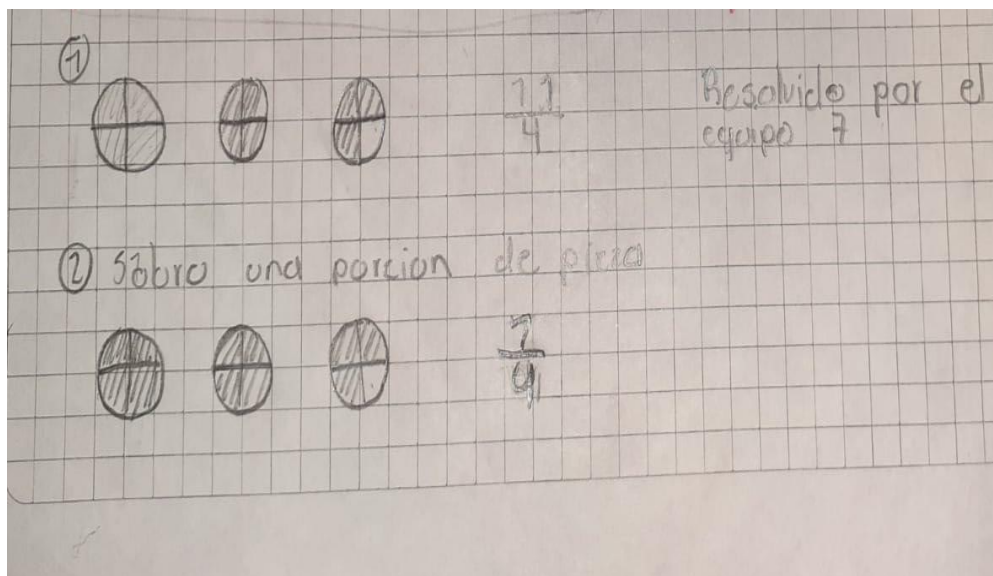 ①
11
4
Resolvido por el
equipo 7
② Sobro una porcion de pizza
1
4